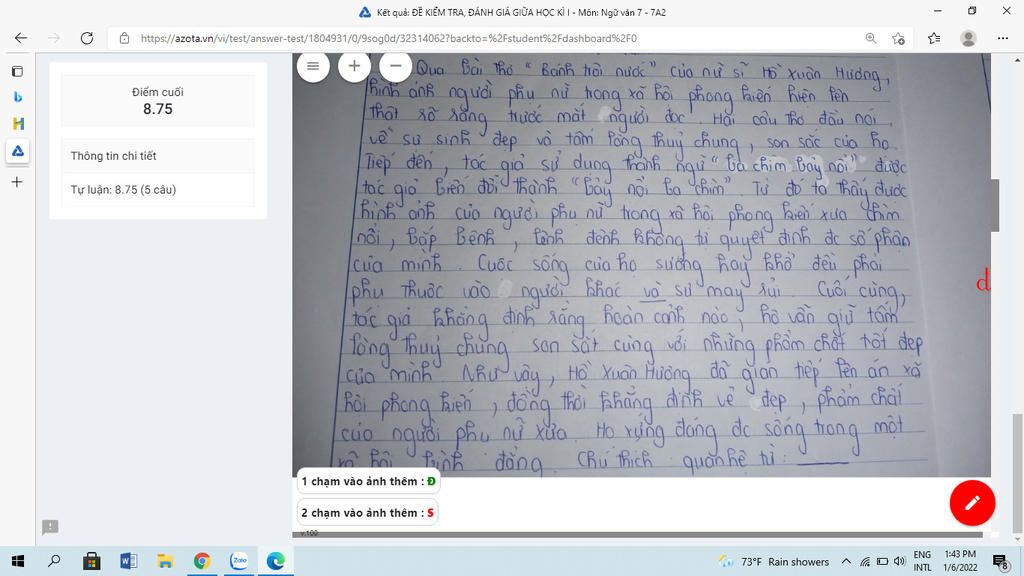 Kết quả: ĐỀ KIỂM TRA, ĐÁNH GIÁ GIỮA HỌC KÌ I - Môn: Ngữ văn 7 - 7A2
https://azota.vn/vi/test/answer-test/1804931/0/9sog0d/32314062?backto=%2Fstudent%2Fdashboard%2F0
Điểm cuối
8.75
Thông tin chi tiết
Tự luận: 8.75 (5 câu)
Qua bài thơ "Bánh trôi nước" của nữ sĩ Hồ Xuân Hương,
hình ảnh người phụ nữ trong xã hội phong kiến hiện lên
thật rõ ràng trước mắt người đọc. Hai câu thơ đầu nói
về sự sinh đẹp và tấm lòng thuỷ chung, son sắc của họ
Tiếp đến, tác giả sử dụng thành ngữ "ba chìm bảy nổi" được
tác giả biến đổi thành "bảy nổi ba chìm". Từ đó ta thấy được
hình ảnh của người phụ nữ trong xã hội phong kiến xưa chìm
nổi, bấp bênh, lênh đênh không tự quyết định đc số phận
của mình. Cuộc sống của họ sướng hay khổ đều phải
phụ thuộc vào người khác và sự may rủi. Cuối cùng,
tác giả khẳng định rằng hoàn cảnh nào, họ vẫn giữ tấm
lòng thuỷ chung son sắt cùng với những phẩm chất tốt đẹp
của mình. Như vậy, Hồ Xuân Hương đã gián tiếp lên án xã
hội phong kiến, đồng thời khẳng định vẻ đẹp, phẩm chất
của người phụ nữ xưa. Họ xứng đáng đc sống trong một
xã hội bình đẳng. Chú thích quan hệ từ:
d
1 chạm vào ảnh thêm : Đ
2 chạm vào ảnh thêm : S
v.100
73°F Rain showers
ENG
INTL
1:43 PM
1/6/2022
8
Zalo